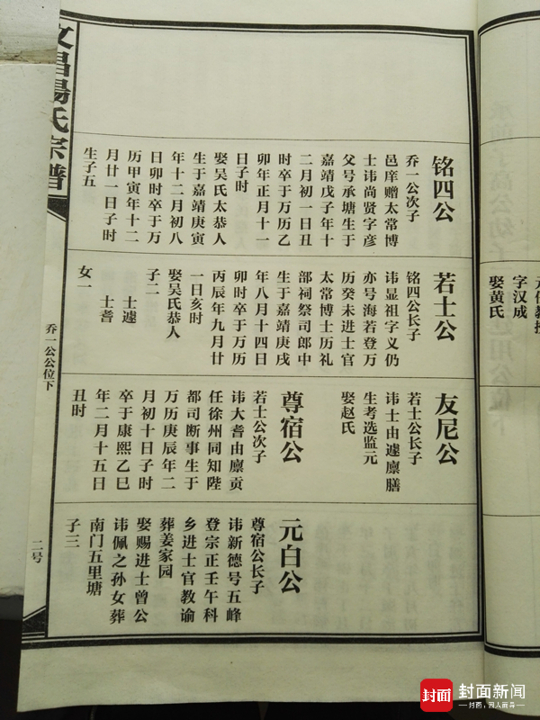 文昌汤氏宗谱
乔一公公位下
二号
铭四公
乔一公次子
邑庠赠太常博
士讳尚贤字彦
父号承塘生于
嘉靖戊子年十
二月初一日丑
时卒于万历乙
卯年正月十一
日子时
娶吴氏太恭人
生于嘉靖庚寅
年十二月初八
日卯时卒于万
历甲寅年十二
月廿一日子时
生子五
若士公
铭四公长子
讳显祖字义仍
亦号海若登万
历癸未进士官
太常博士历礼
部祠祭司郎中
生于嘉靖庚戌
年八月十四日
卯时卒于万历
丙辰年九月廿
一日亥时
娶吴氏恭人
子二
士遽
士耆
女一
友尼公
若士公长子
讳士由遽廪膳
生考选监元
娶赵氏
尊宿公
若士公次子
讳大耆由廪贡
任徐州同知陛
都司断事生于
万历庚辰年二
月初十日子时
卒于康熙乙巳
年二月十五日
丑时
元白公
尊宿公长子
讳新德号五峰
登宗正壬午科
乡进士官教谕
葬姜家园
娶赐进士曾公
讳佩之孙女葬
南门五里塘
子三
字汉成
娶黄氏
封面
封面新闻